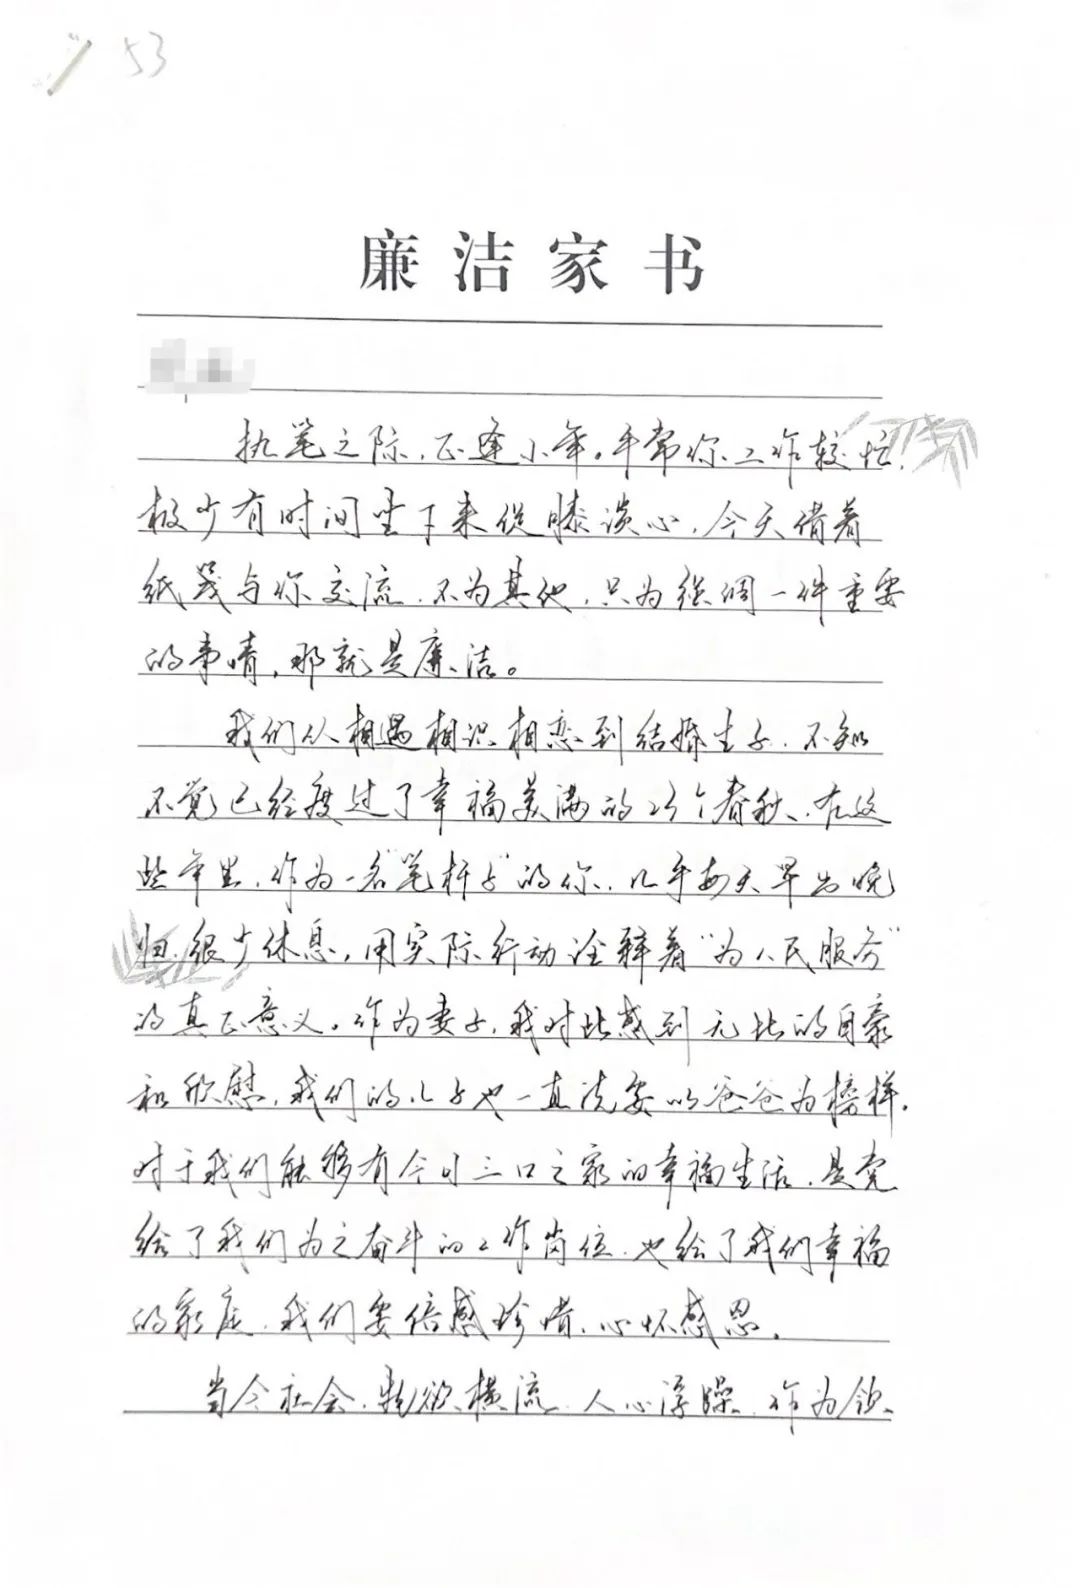 53
廉洁家书
执笔之际，正逢小年。平常你工作较忙，
极少有时间坐下来促膝谈心，今天借着
纸笺与你交流，不为其他，只为强调一件重要
的事情，那就是廉洁。
我们从相遇相识相恋到结婚生子，不知
不觉已经度过了幸福美满的23个春秋，在这
些年里，作为一名“笔杆子”的你，几乎每天早出晚
归，很少休息，用实际行动诠释着“为人民服务”
的真正意义。作为妻子，我对此感到无比的自豪
和欣慰，我们的儿子也一直说要以爸爸为榜样，
对于我们能够有今日三口之家的幸福生活，是党
给了我们为之奋斗的工作岗位，也给了我们幸福
的家庭，我们要倍感珍惜，心怀感恩。
当今社会，物欲横流，人心浮躁，作为